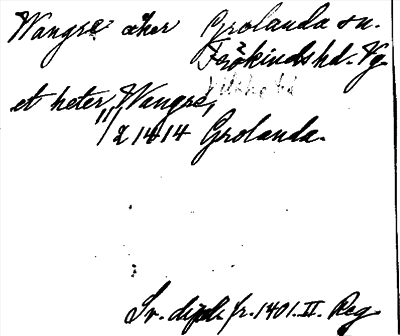 Wangre åker Grolanda sn.
Frökinds hd. Vg.
Vilske hd
et heter Wangre,
11/2 1414 Grolanda.
Sv. dipl. fr. 1401. II. Reg